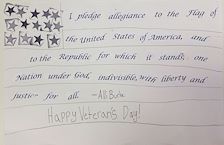 I pledge allegiance to the Flag of
the United States of America, and
to the Republic for which it stands; one
Nation under God, indivisible, with liberty and
justice for all. -Alli
Happy Veteran's Day!